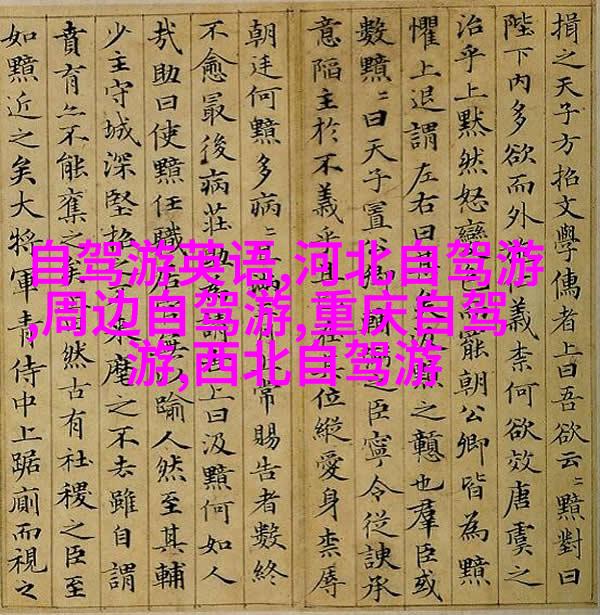 揖之天子方招文學儒者上曰吾欲云〻黯對曰
陛下内多欲而外仁義柰何欲效唐虞之
治乎上黙然怒變色而罷朝公卿皆為黯
懼上退謂左右曰甚矣汲黯之戇也羣臣或
數黯〻曰天子置公卿輔弼之臣寧令従諛承
意陥主於不義乎且在位縱愛身柰辱
朝廷何黯多病〻滿三月常賜告者數終
不愈最後病莊助為請告上曰汲黯何如人
㢤助曰使黯任職居官無以踰人然至其輔
少主守城深堅招之不来麾之不去雖自謂
賁育亦不能奪之矣然古有社稷之臣至
如黯近之矣大将軍青侍中上踞廁而視之
自驾游英语,河北自驾游
,周边自驾游,重庆自驾
游,西北自驾游